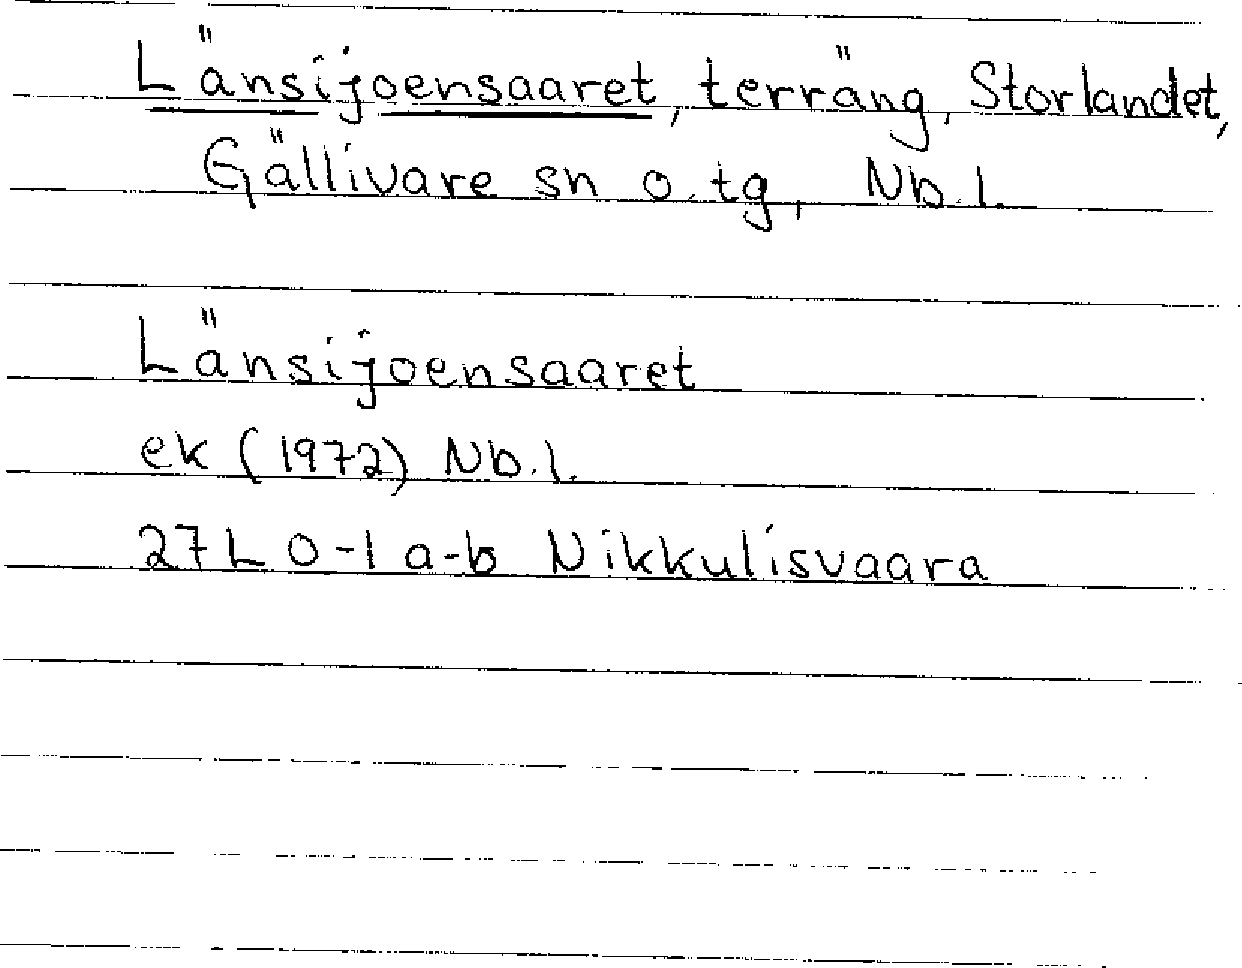 Länsijoensaaret, terräng, Storlandet,
Gällivare sn o. tg, Nb. l.
Länsijoensaaret
ek (1972) Nb. l.
27L 0-1 a-b Nikkulisvaara